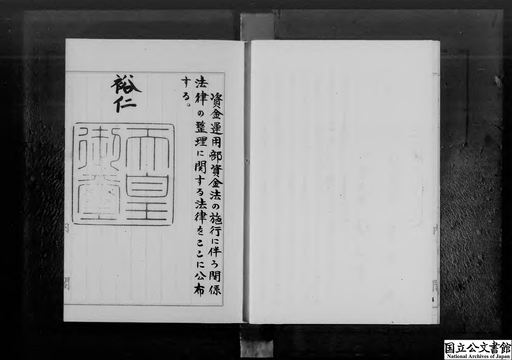 資金運用部資金法の施行に伴う関係
法律の整理に関する法律をここに公布
する。
裕仁
天皇御璽
国立公文書館
National Archives of Japan